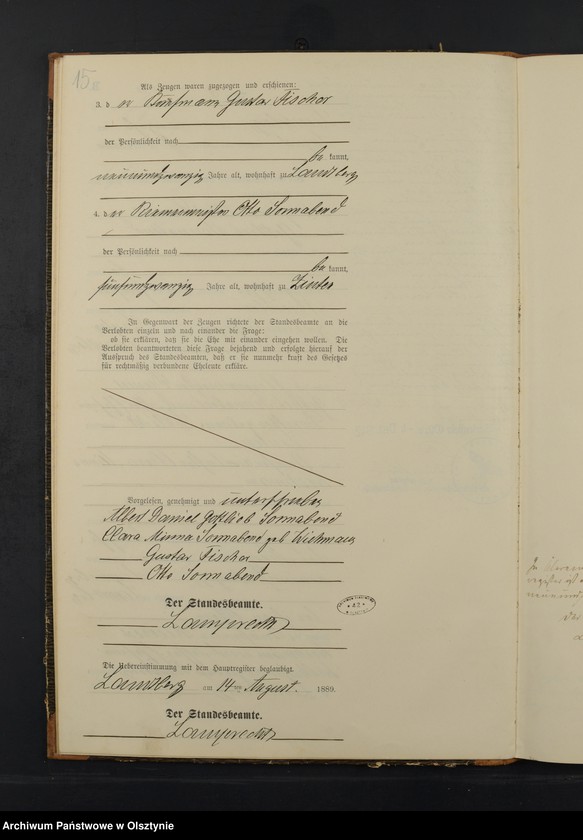 15
Als Zeugen waren zugezogen und erschienen:
3. der Kaufmann Gustav Fischer
der Persönlichkeit nach
bekannt,
neunundzwanzig Jahre alt, wohnhaft zu Landsberg
4. der Otto Sonnabend
der Persönlichkeit nach
bekannt,
fünfundzwanzig Jahre alt, wohnhaft zu Zinten
In Gegenwart der Zeugen richtete der Standesbeamte an die
Verlobten einzeln und nach einander die Frage:
ob sie erklären, daß sie die Ehe mit einander eingehen wollen. Die
Verlobten beantworteten diese Frage bejahend und erfolgte hierauf der
Ausspruch des Standesbeamten, daß er sie nunmehr kraft des Gesetzes
für rechtmäßig verbundene Eheleute erkläre.
Vorgelesen, genehmigt und unterschrieben
Albert Daniel Gottlieb Sonnabend
Clara Minna Sonnabend geb. Wichmann
Gustav Fischer
Otto Sonnabend
Der Standesbeamte.
Lamprecht
Die Uebereinstimmung mit dem Hauptregister beglaubigt.
Landsberg am 14 ten August 1889.
Der Standesbeamte.
Lamprecht
Archiwum Państwowe w Olsztynie